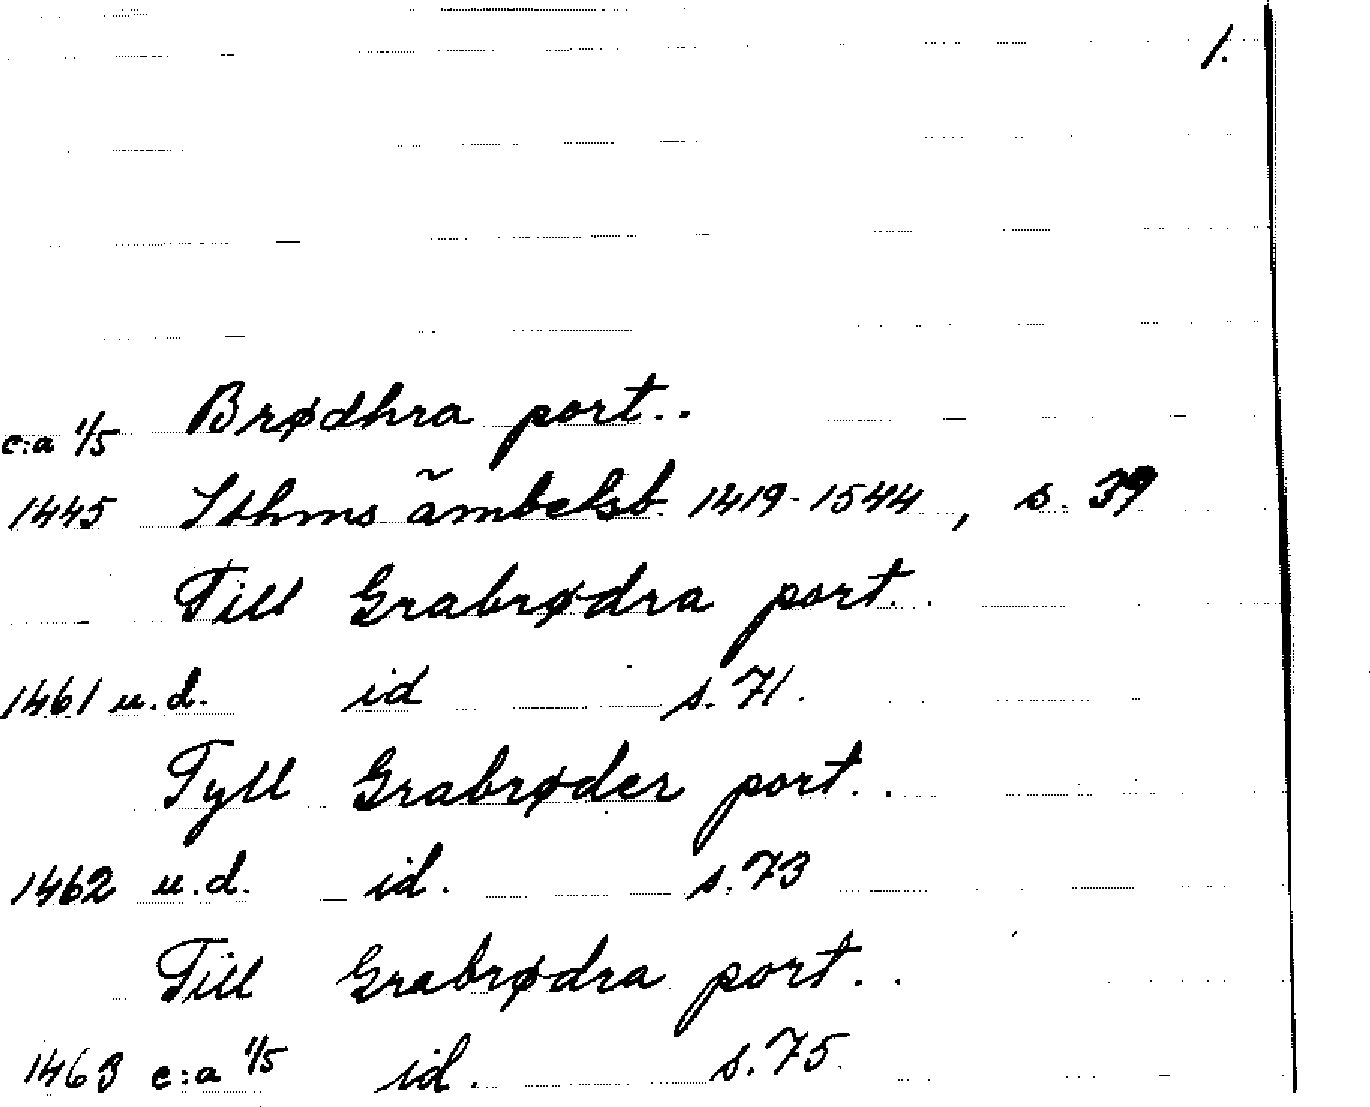 1.
Brødhra port..
c:a 1/5
1445 Sthms ämbetsb. 1419-1544, s. 39
Till Grabrødra port..
1461 u.d. id s. 71.
Tyll Grabrøder port..
1462 u.d. id. s. 73
Till Grabrødra port..
1463 c:a 1/5 id. s. 75.